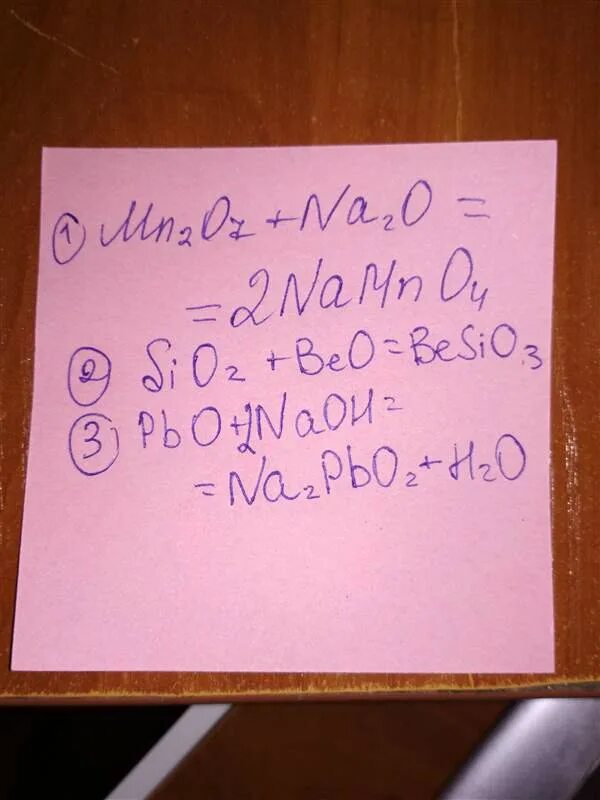 ① Mn₂O₇ + Na₂O =
= 2NaMnO₄
② SiO₂ + BeO = BeSiO₃
③ PbO + 2NaOH =
= Na₂PbO₂ + H₂O